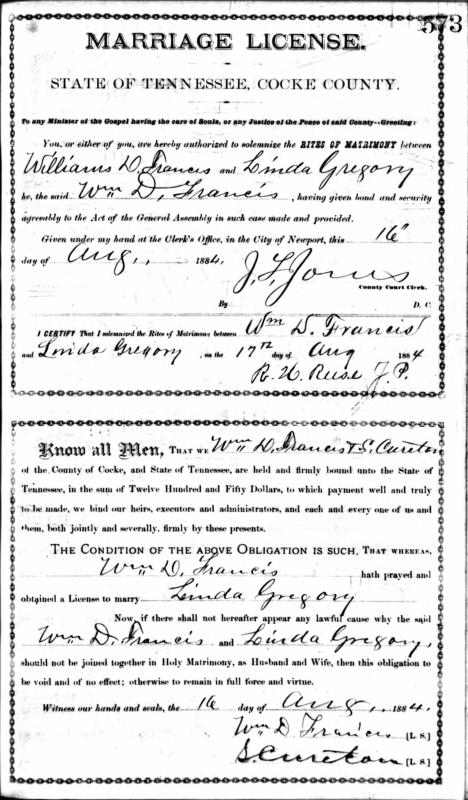 573
MARRIAGE LICENSE.
STATE OF TENNESSEE, COCKE COUNTY.
To any Minister of the Gospel having the care of Souls, or any Justice of the Peace of said County--Greeting:
You, or either of you, are hereby authorized to solemnize the RITES OF MATRIMONY between
Williams D. Francis and Linda Gregory
he, the said Wm D. Francis, having given bond and security
agreeably to the Act of the General Assembly in such case made and provided.
Given under my hand at the Clerk's Office, in the City of Newport, this 16"
day of Aug., 1884.
J. F. Jones
County Court Clerk.
By D. C.
I CERTIFY That I solemnized the Rites of Matrimony between Wm D. Francis
and Linda Gregory, on the 17th day of Aug 1884
R. H. Reese J. P.
Know all Men, THAT WE Wm D. Francis & S. Cureton
of the County of Cocke, and State of Tennessee, are held and firmly bound unto the State of
Tennessee, in the sum of Twelve Hundred and Fifty Dollars, to which payment well and truly
to be made, we bind our heirs, executors and administrators, and each and every one of us and
them, both jointly and severally, firmly by these presents.
THE CONDITION OF THE ABOVE OBLIGATION IS SUCH, THAT WHEREAS,
Wm D. Francis hath prayed and
obtained a License to marry Linda Gregory
Now, if there shall not hereafter appear any lawful cause why the said
Wm D. Francis and Linda Gregory,
should not be joined together in Holy Matrimony, as Husband and Wife, then this obligation to
be void and of no effect; otherwise to remain in full force and virtue.
Witness our hands and seals, the 16 day of Aug., 1884.
Wm D Francis [L. S.]
S. Cureton [L. S.]